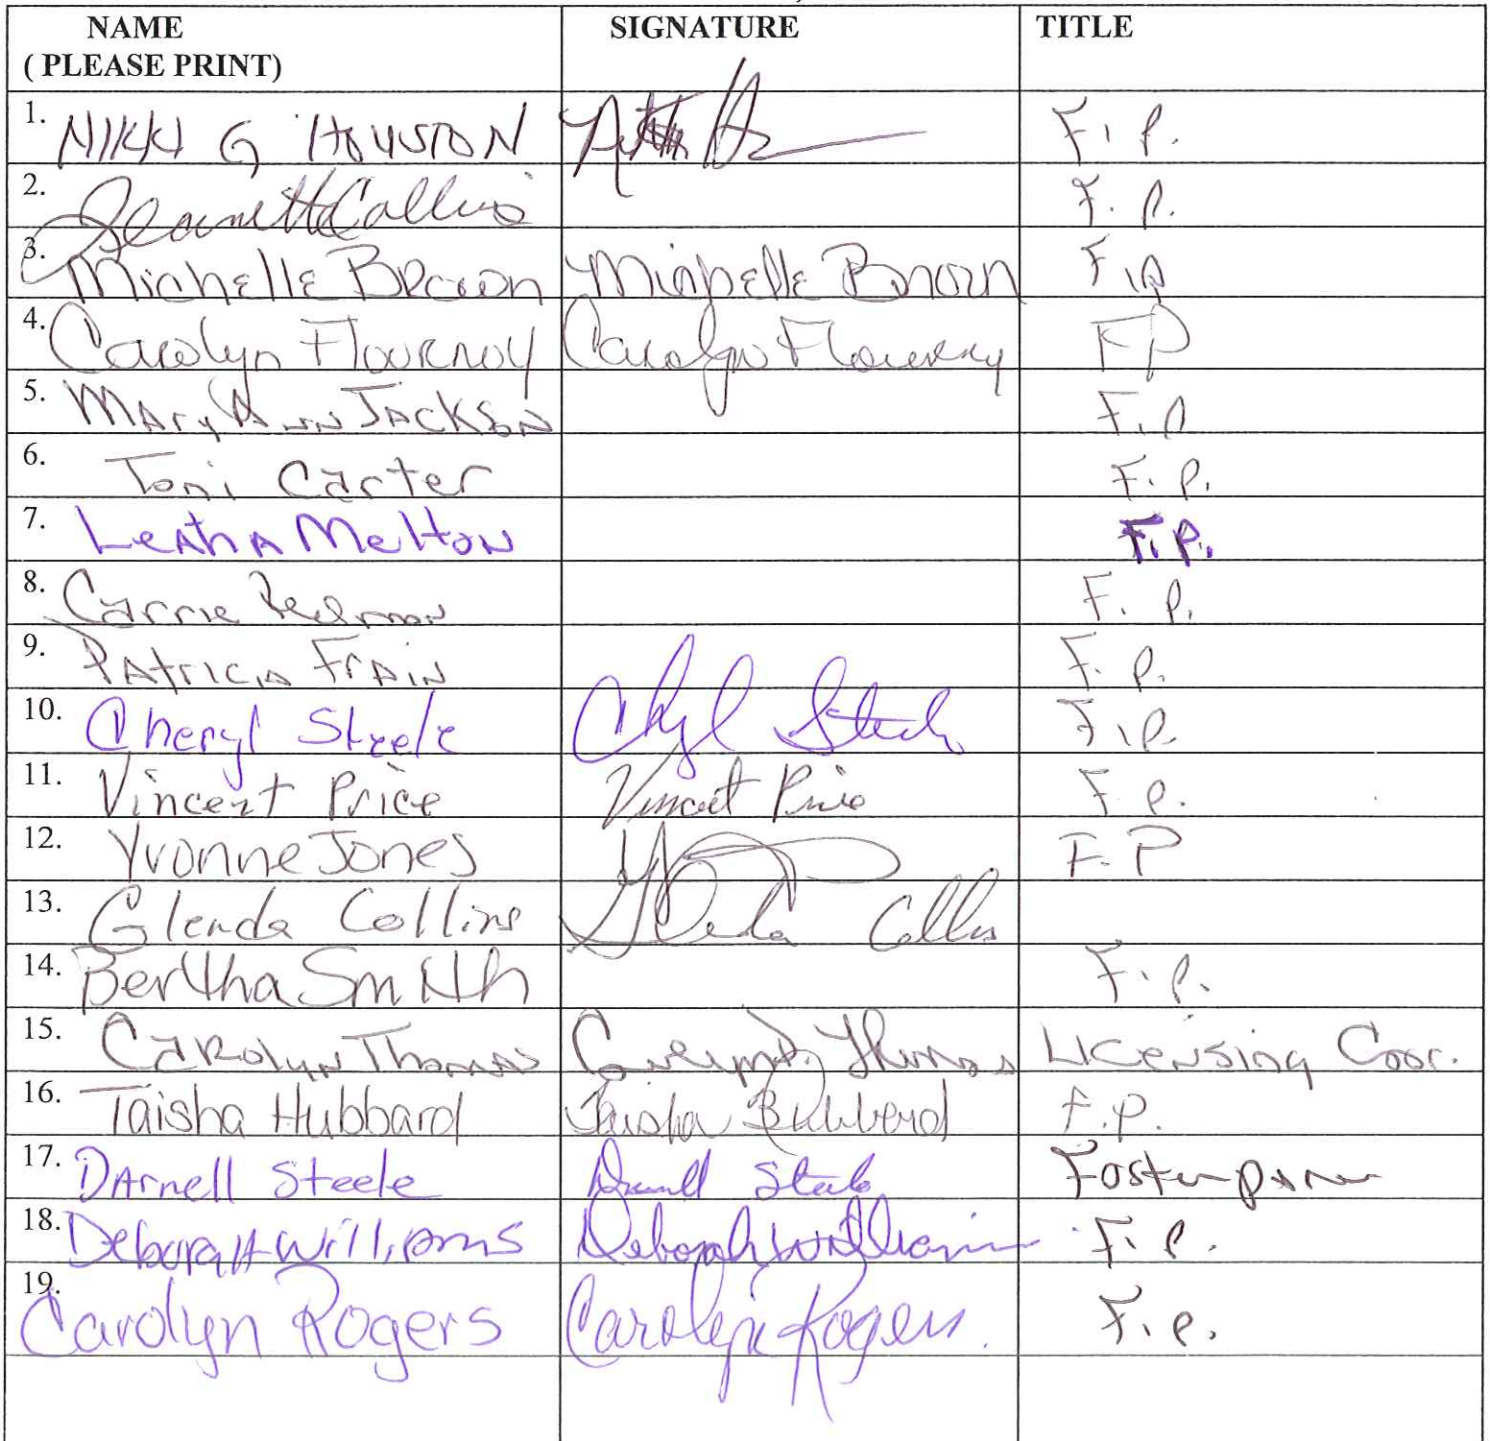 NAME SIGNATURE TITLE
( PLEASE PRINT)
1. NIKKI G HOUSTON F.P.
2. Jeanette Collins F.P.
3. Michelle Brown Michelle Brown F.P
4. Carolyn Flournoy Carolyn Flournoy FP
5. Mary Ann Jackson F.P
6. Toni Carter F.P.
7. Leatha Melton F.P.
8. Carrie Redmon F.P.
9. Patricia Frain F.P.
10. Cheryl Steele Cheryl Steele F.P.
11. Vincent Price Vincent Price F.P.
12. Yvonne Jones F.P
13. Glenda Collins Glenda Collins
14. Bertha Smith F.P.
15. Carolyn Thomas Thomas Licensing Coor.
16. Taisha Hubbard Taisha Hubbard F.P.
17. Darnell Steele Darnell Steele Foster paren
18. Deborah Williams Deborah Williams F.P.
19. Carolyn Rogers Carolyn Rogers. F.P.